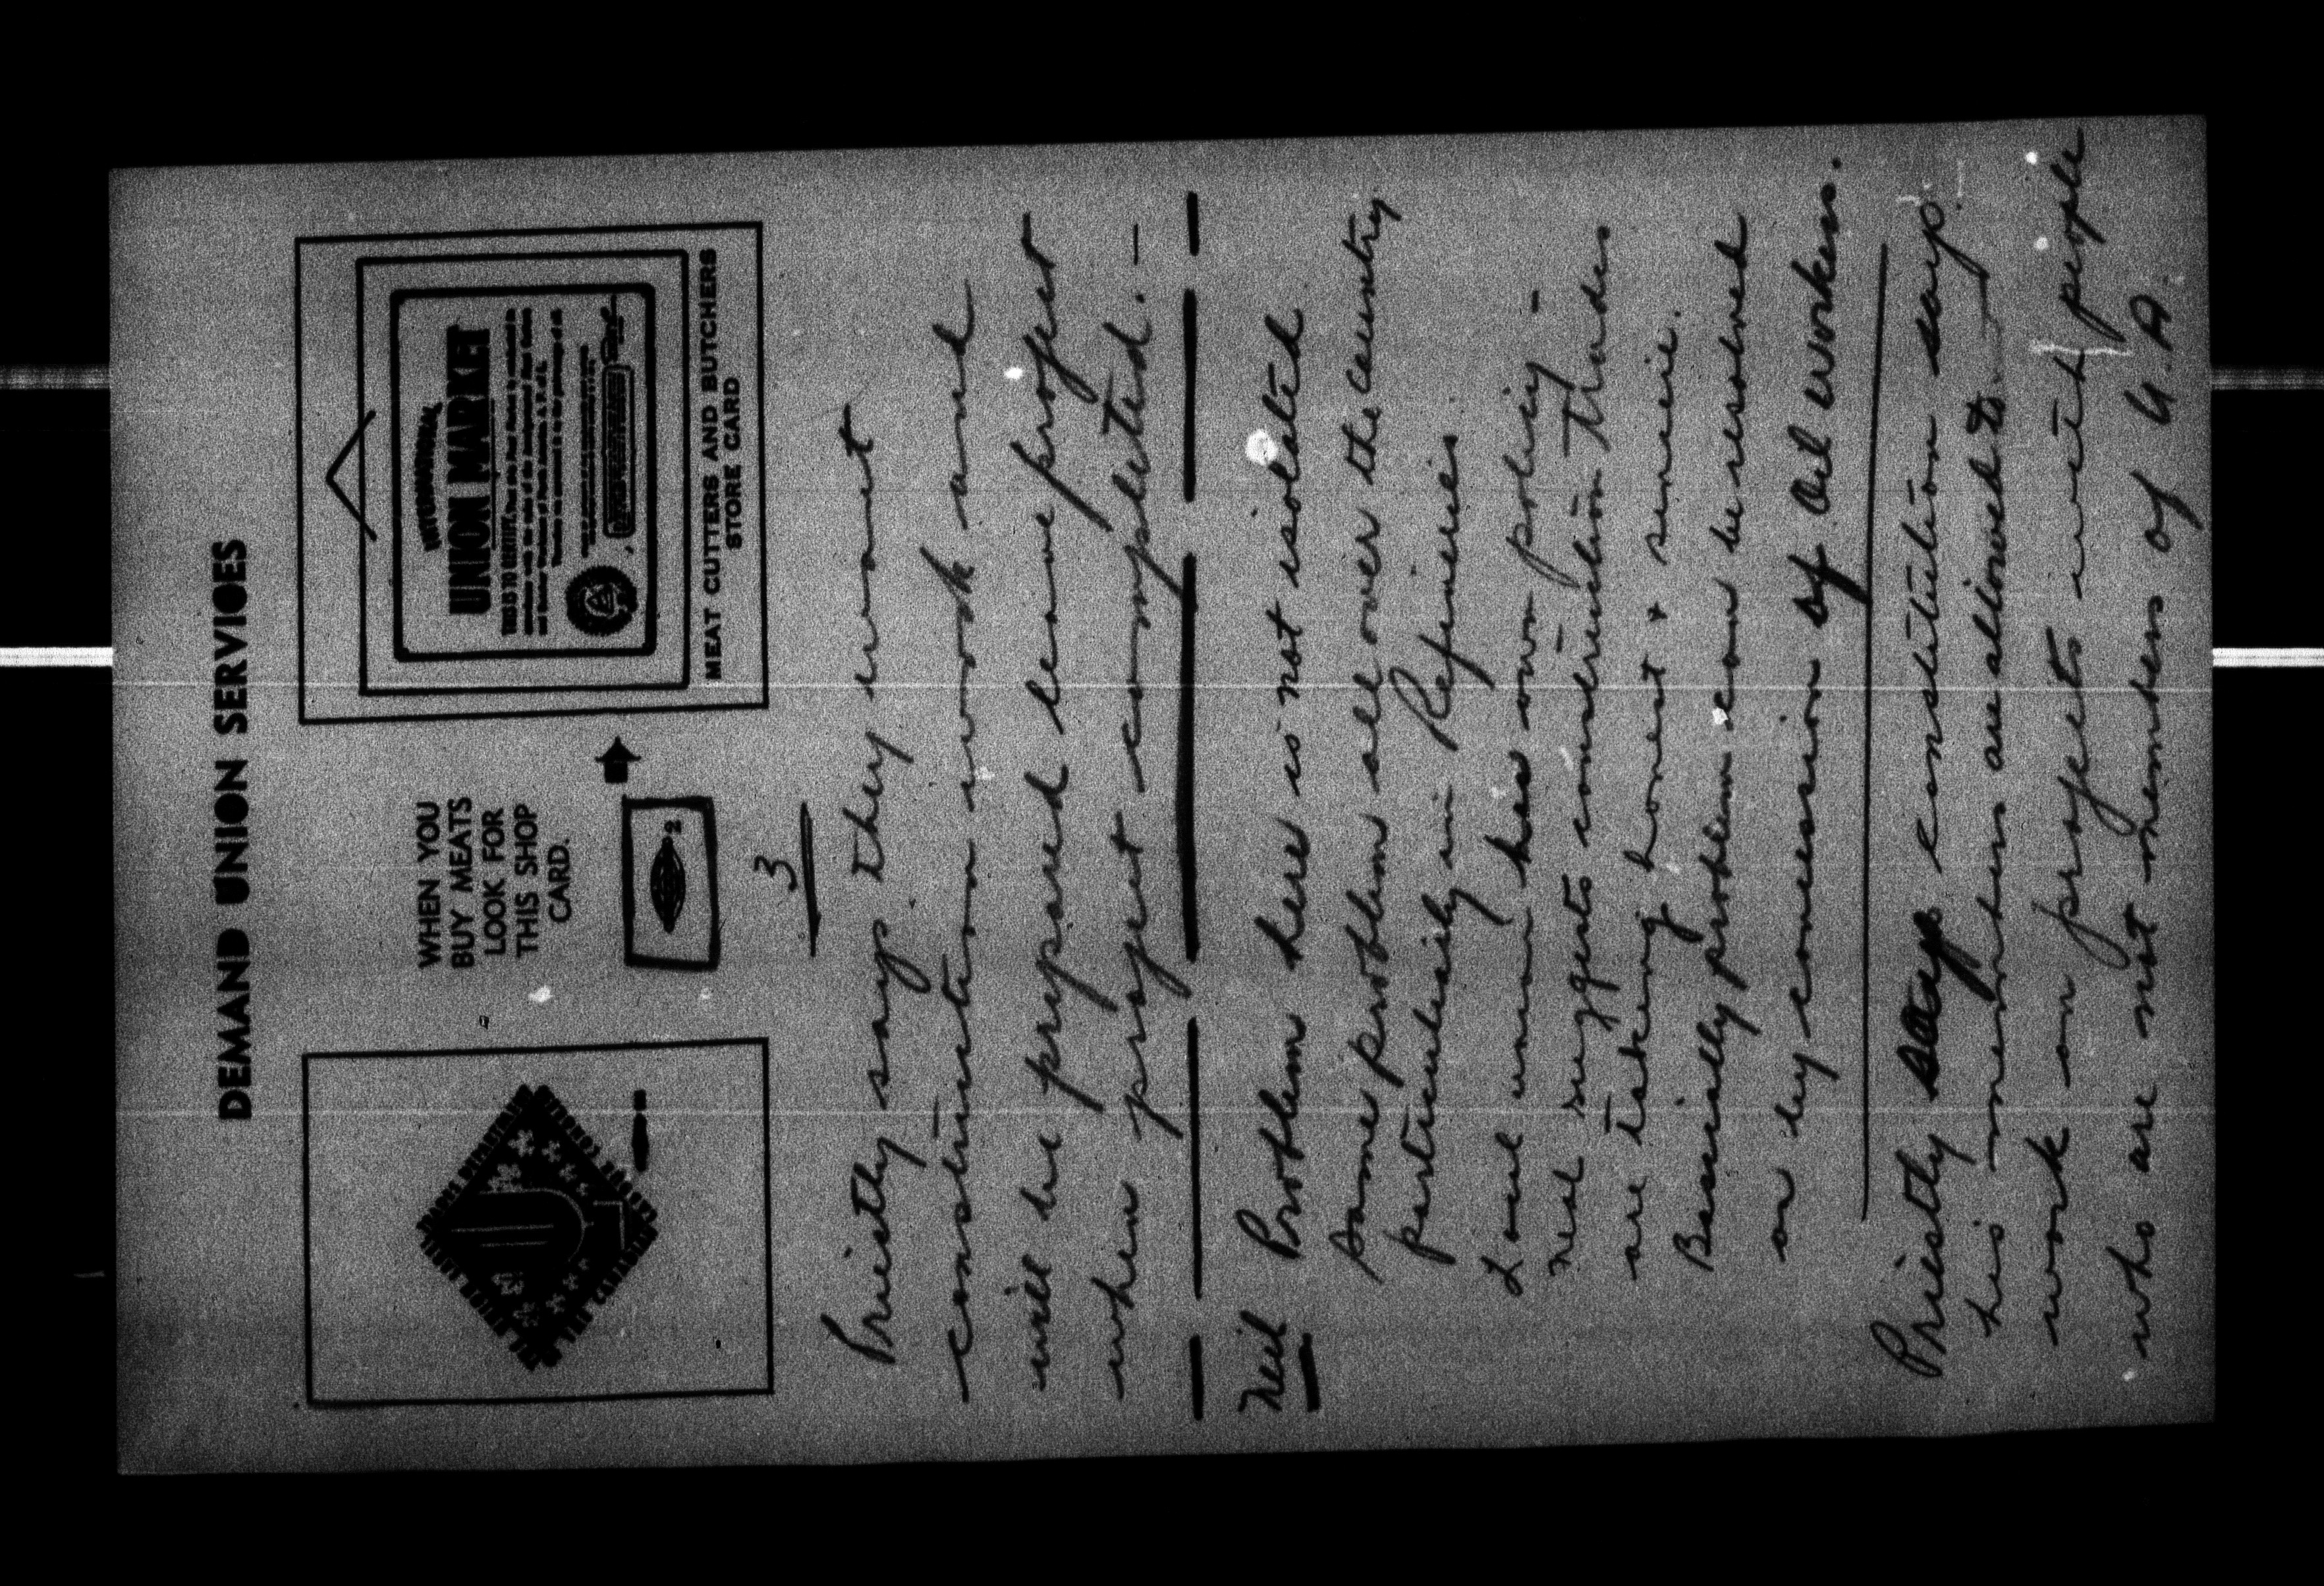 DEMAND UNION SERVICES
WHEN YOU
BUY MEATS
LOOK FOR
THIS SHOP
CARD.
UNION MARKET
THIS IS TO CERTIFY,
MEAT CUTTERS AND BUTCHERS
STORE CARD
2
3
Priestly says they want
construction work and
will be prepared leave project
when project completed. —
Neil Problem here is not isolated
Same problem all over the country
particularily in Refineries
Local union has own policy -
Neil suggests construction trades
are taking honest + sincere.
Basically problem can be resolved
on by concession of Oil Workers.
Priestly says constitution says
his members are allowed to
work on projects with people
who are not members of U.A.